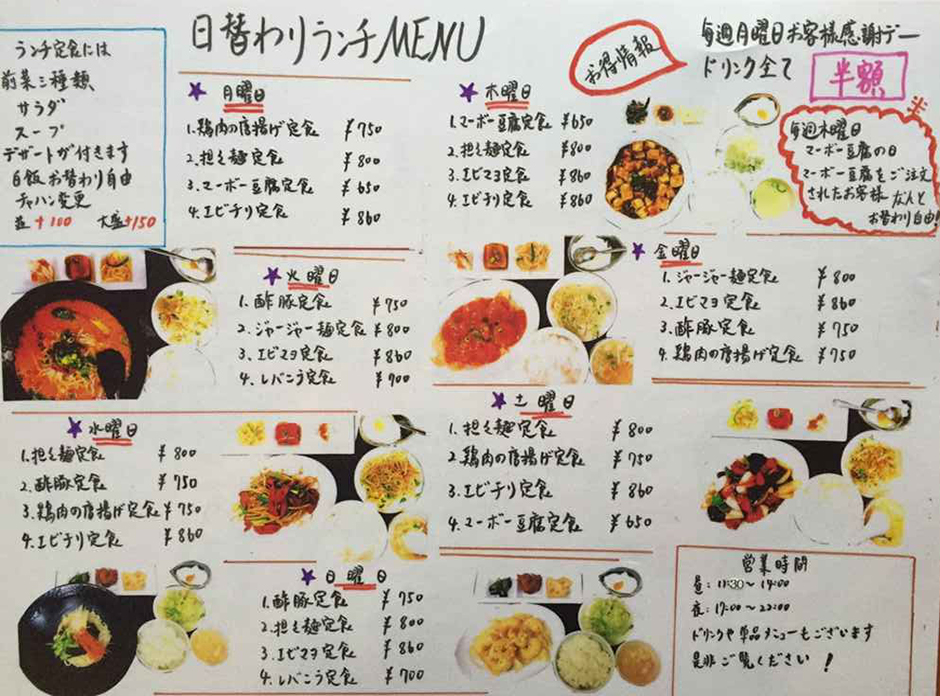 日替わりランチMENU
ランチ定食には
前菜三種類
サラダ
スープ
デザートが付きます
白飯お替わり自由
チャハン変更
並+100 大盛+150
月曜日
1.鶏肉の唐揚げ定食 ¥750
2.担々麺定食 ¥800
3.マーボー豆腐定食 ¥650
4.エビチリ定食 ¥860
木曜日
1.マーボー豆腐定食 ¥650
2.担々麺定食 ¥800
3.エビマヨ定食 ¥860
4.エビチリ定食 ¥860
お得情報
毎週月曜日お客様感謝デー
ドリンク全て
半額
毎週木曜日
マーボー豆腐の日
マーボー豆腐をご注文
されたお客様
お替わり自由!
火曜日
1.酢豚定食 ¥750
2.ジャージャー麺定食 ¥800
3.エビマヨ定食 ¥860
4.レバニラ定食 ¥700
金曜日
1.ジャージャー麺定食 ¥800
2.エビマヨ定食 ¥860
3.酢豚定食 ¥750
4.鶏肉の唐揚げ定食 ¥750
水曜日
1.担々麺定食 ¥800
2.酢豚定食 ¥750
3.鶏肉の唐揚げ定食 ¥750
4.エビチリ定食 ¥860
土曜日
1.担々麺定食 ¥800
2.鶏肉の唐揚げ定食 ¥750
3.エビチリ定食 ¥860
4.マーボー豆腐定食 ¥650
日曜日
1.酢豚定食 ¥750
2.担々麺定食 ¥800
3.エビマヨ定食 ¥860
4.レバニラ定食 ¥700
営業時間
昼:11:30〜14:00
夜:17:00〜22:00
ドリンクや単品メニューもございます
是非ご覧ください!